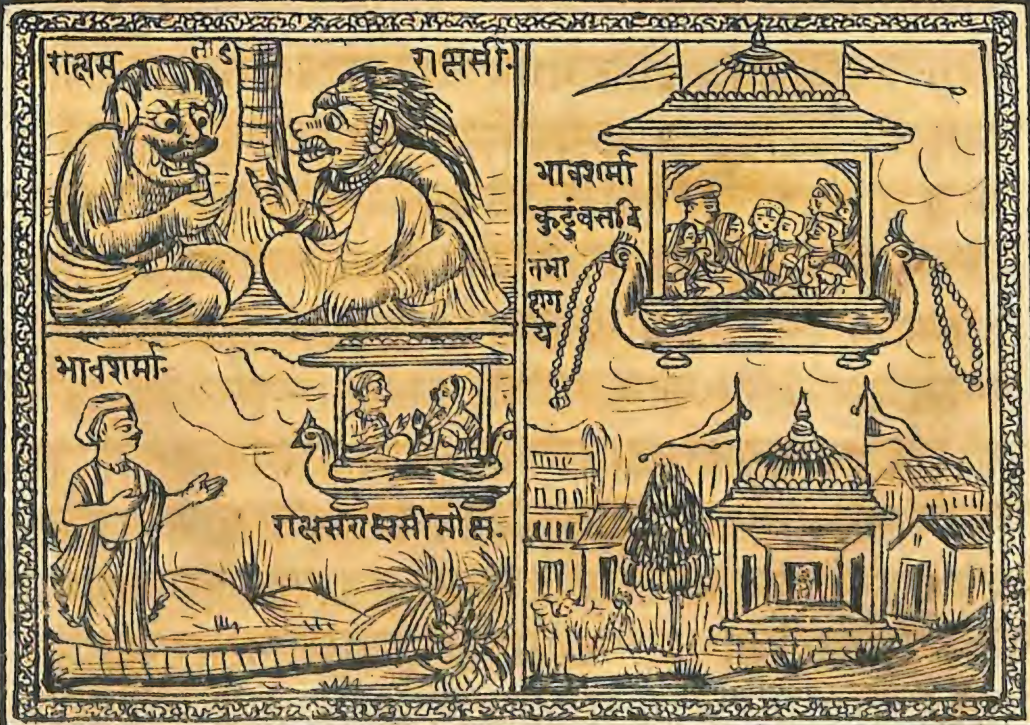 राक्षस
ताड
राक्षसी.
भावशर्मा.
राक्षसराक्षसीमोक्ष.
भावशर्मा
कुटुंबसहि